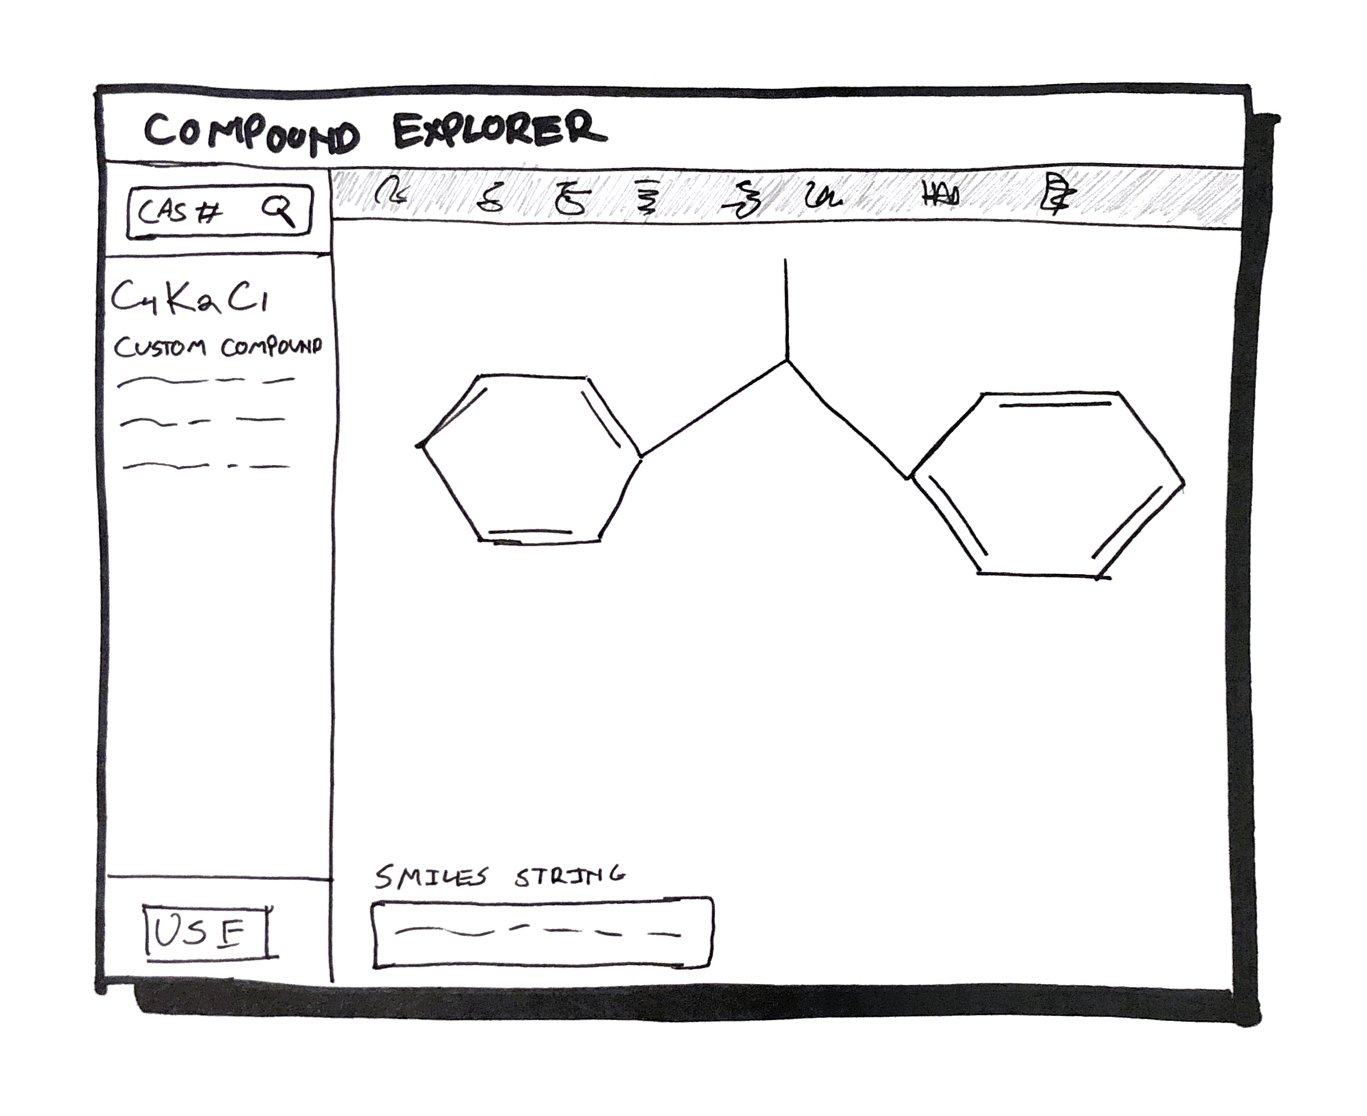 COMPOUND EXPLORER
CAS #
C4K2Cl
CUSTOM COMPOUND
SMILES STRING
USE